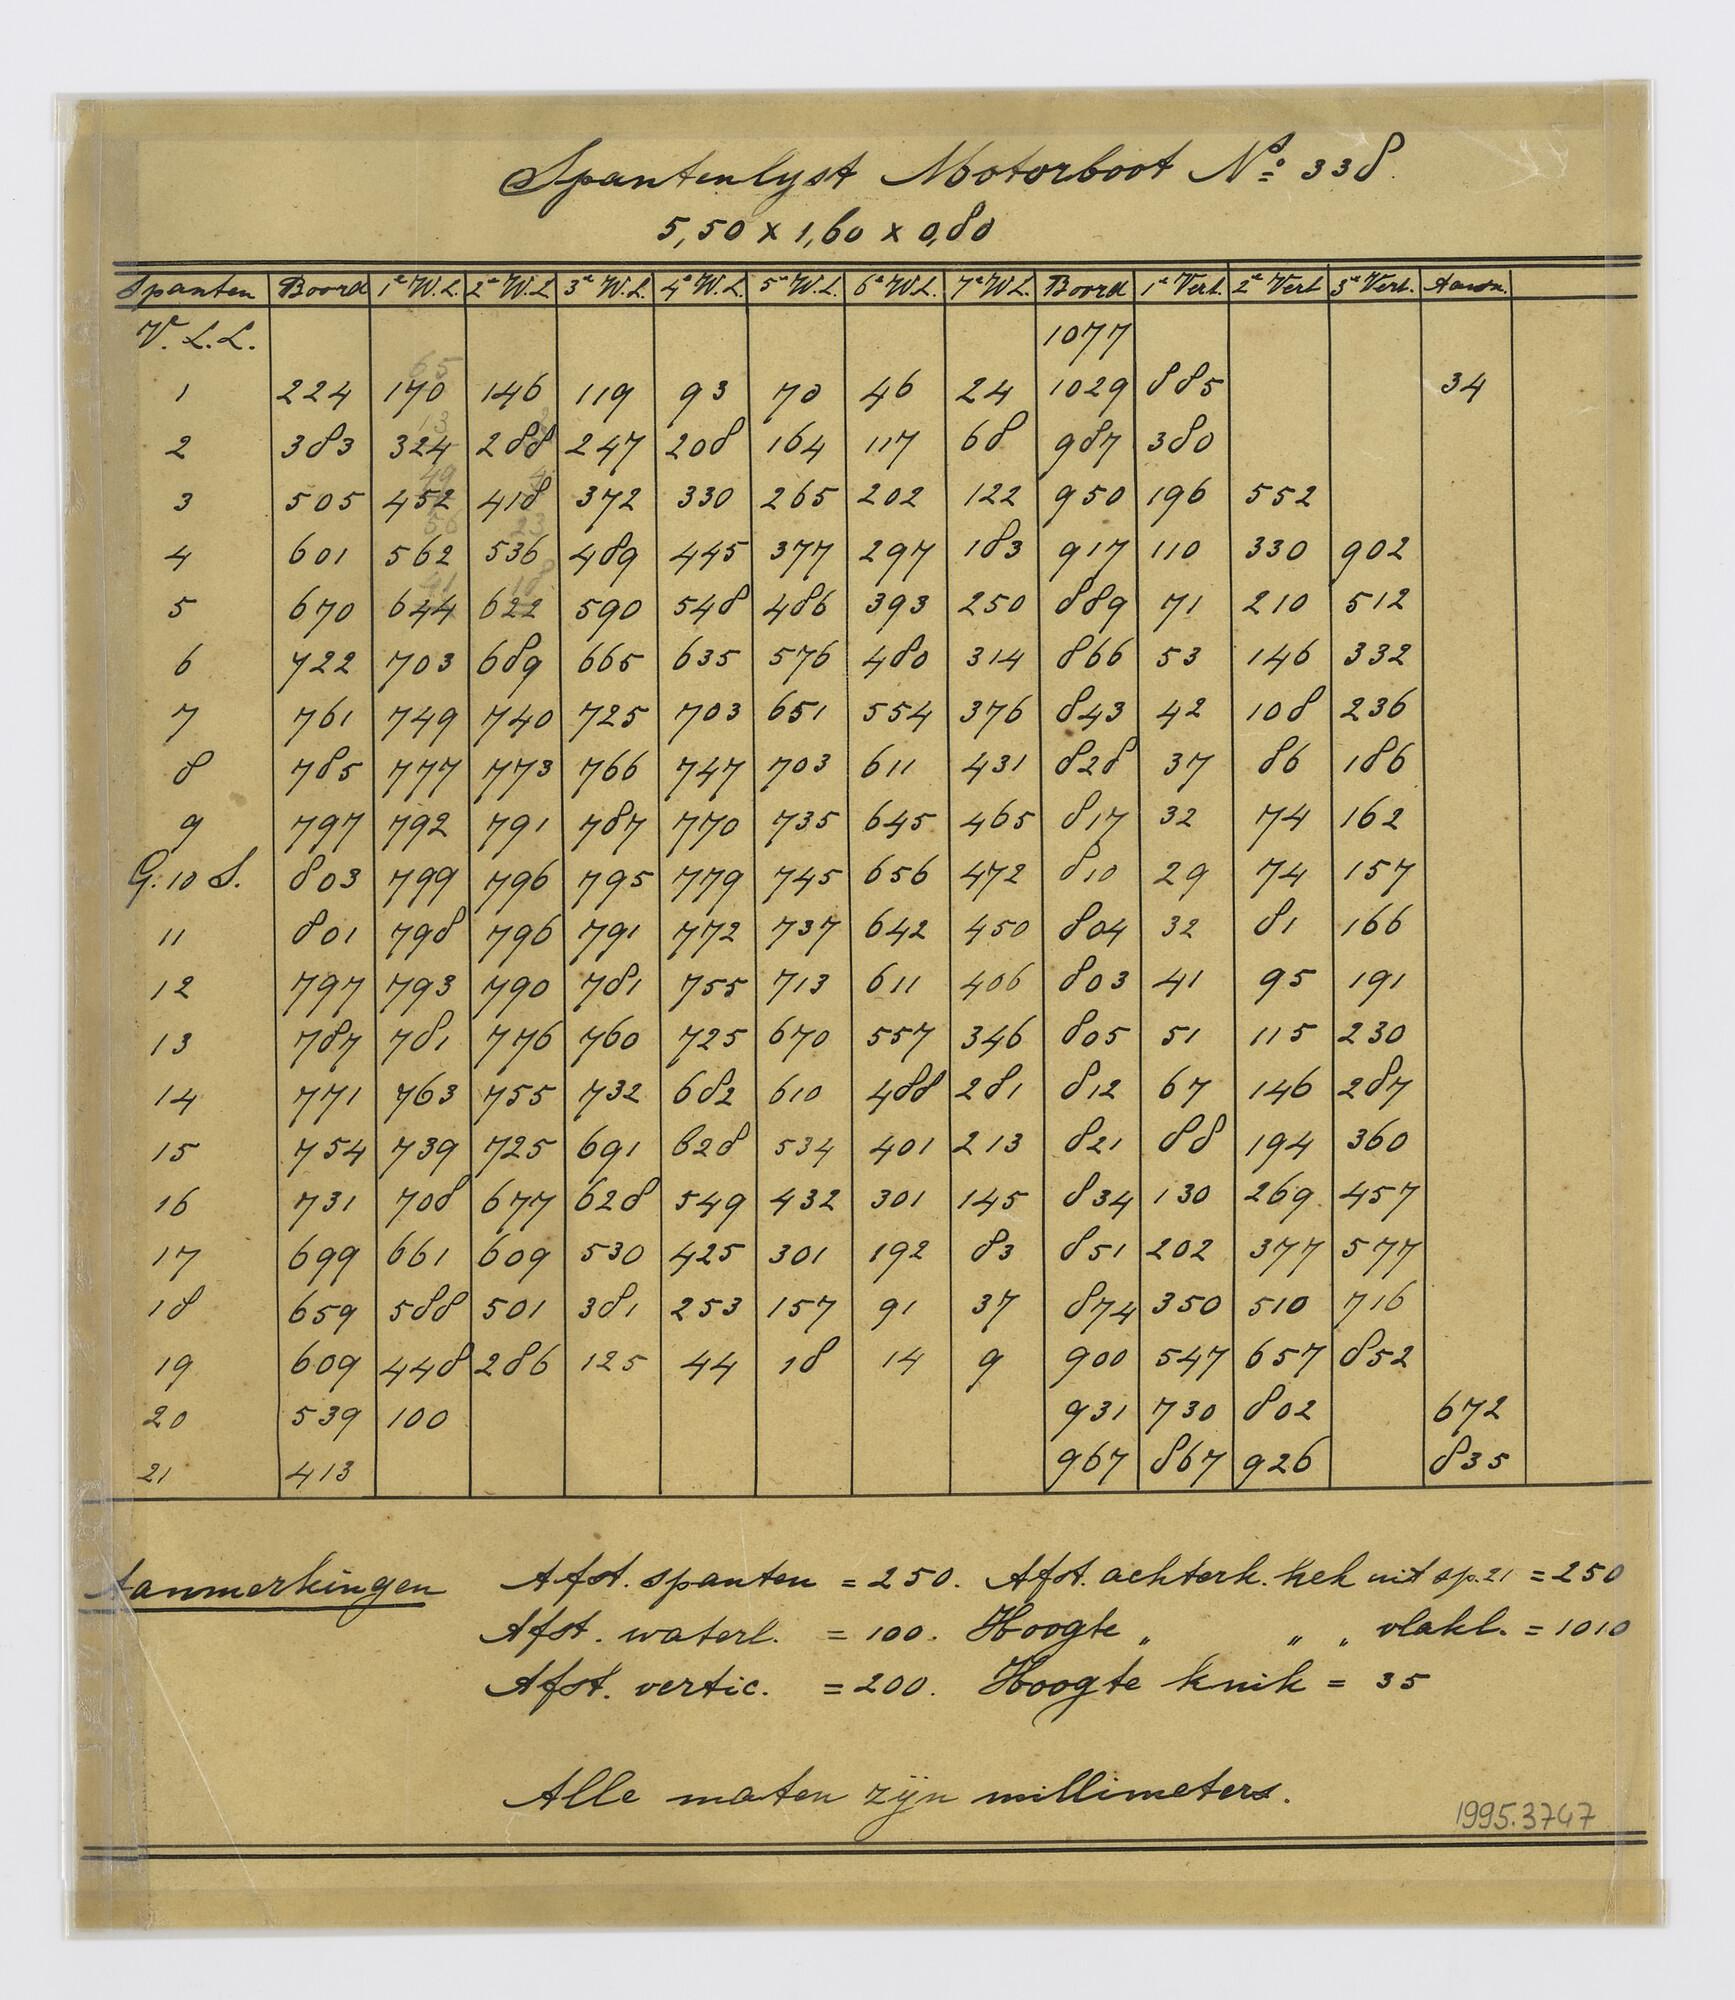 Spantenlyst Motorboot No. 338.
5,50 x 1,60 x 0,80
Spanten Boord 1e W.L. 2e W.L 3e W.L. 4e W.L. 5e W.L. 6e W.L. 7e W.L. Boord 1e Vert. 2e Vert 3e Vert. Aanm.
V. L.L. 1077
1 224 170 146 119 93 70 46 24 1029 885 34
2 383 324 288 247 208 164 117 68 987 380
3 505 452 418 372 330 265 202 122 950 196 552
4 601 562 536 489 445 377 297 183 917 110 330 902
5 670 644 622 590 548 486 393 250 889 71 210 512
6 722 703 689 665 635 576 480 314 866 53 146 332
7 761 749 740 725 703 651 554 376 843 42 108 236
8 785 777 773 766 747 703 611 431 828 37 86 186
9 797 792 791 787 770 735 645 465 817 32 74 162
G. 10 S. 803 799 796 795 779 745 656 472 810 29 74 157
11 801 798 796 791 772 737 642 450 804 32 81 166
12 797 793 790 781 755 713 611 406 803 41 95 191
13 787 781 776 760 725 670 557 346 805 51 115 230
14 771 763 755 732 682 610 488 281 812 67 146 287
15 754 739 725 691 628 534 401 213 821 88 194 360
16 731 708 677 628 549 432 301 145 834 130 269 457
17 699 661 609 530 425 301 192 83 851 202 377 577
18 659 588 501 381 253 157 91 37 874 350 510 716
19 609 448 286 125 44 18 14 9 900 547 657 852
20 539 100 931 730 802 672
21 413 967 867 926 835
Aanmerkingen Afst. spanten = 250. Afst. achterk. hek uit sp. 21 = 250
Afst. waterl. = 100. Hoogte " " " vlakl. = 1010
Afst. vertic. = 200. Hoogte knik = 35
Alle maten zijn millimeters.
1995.3747